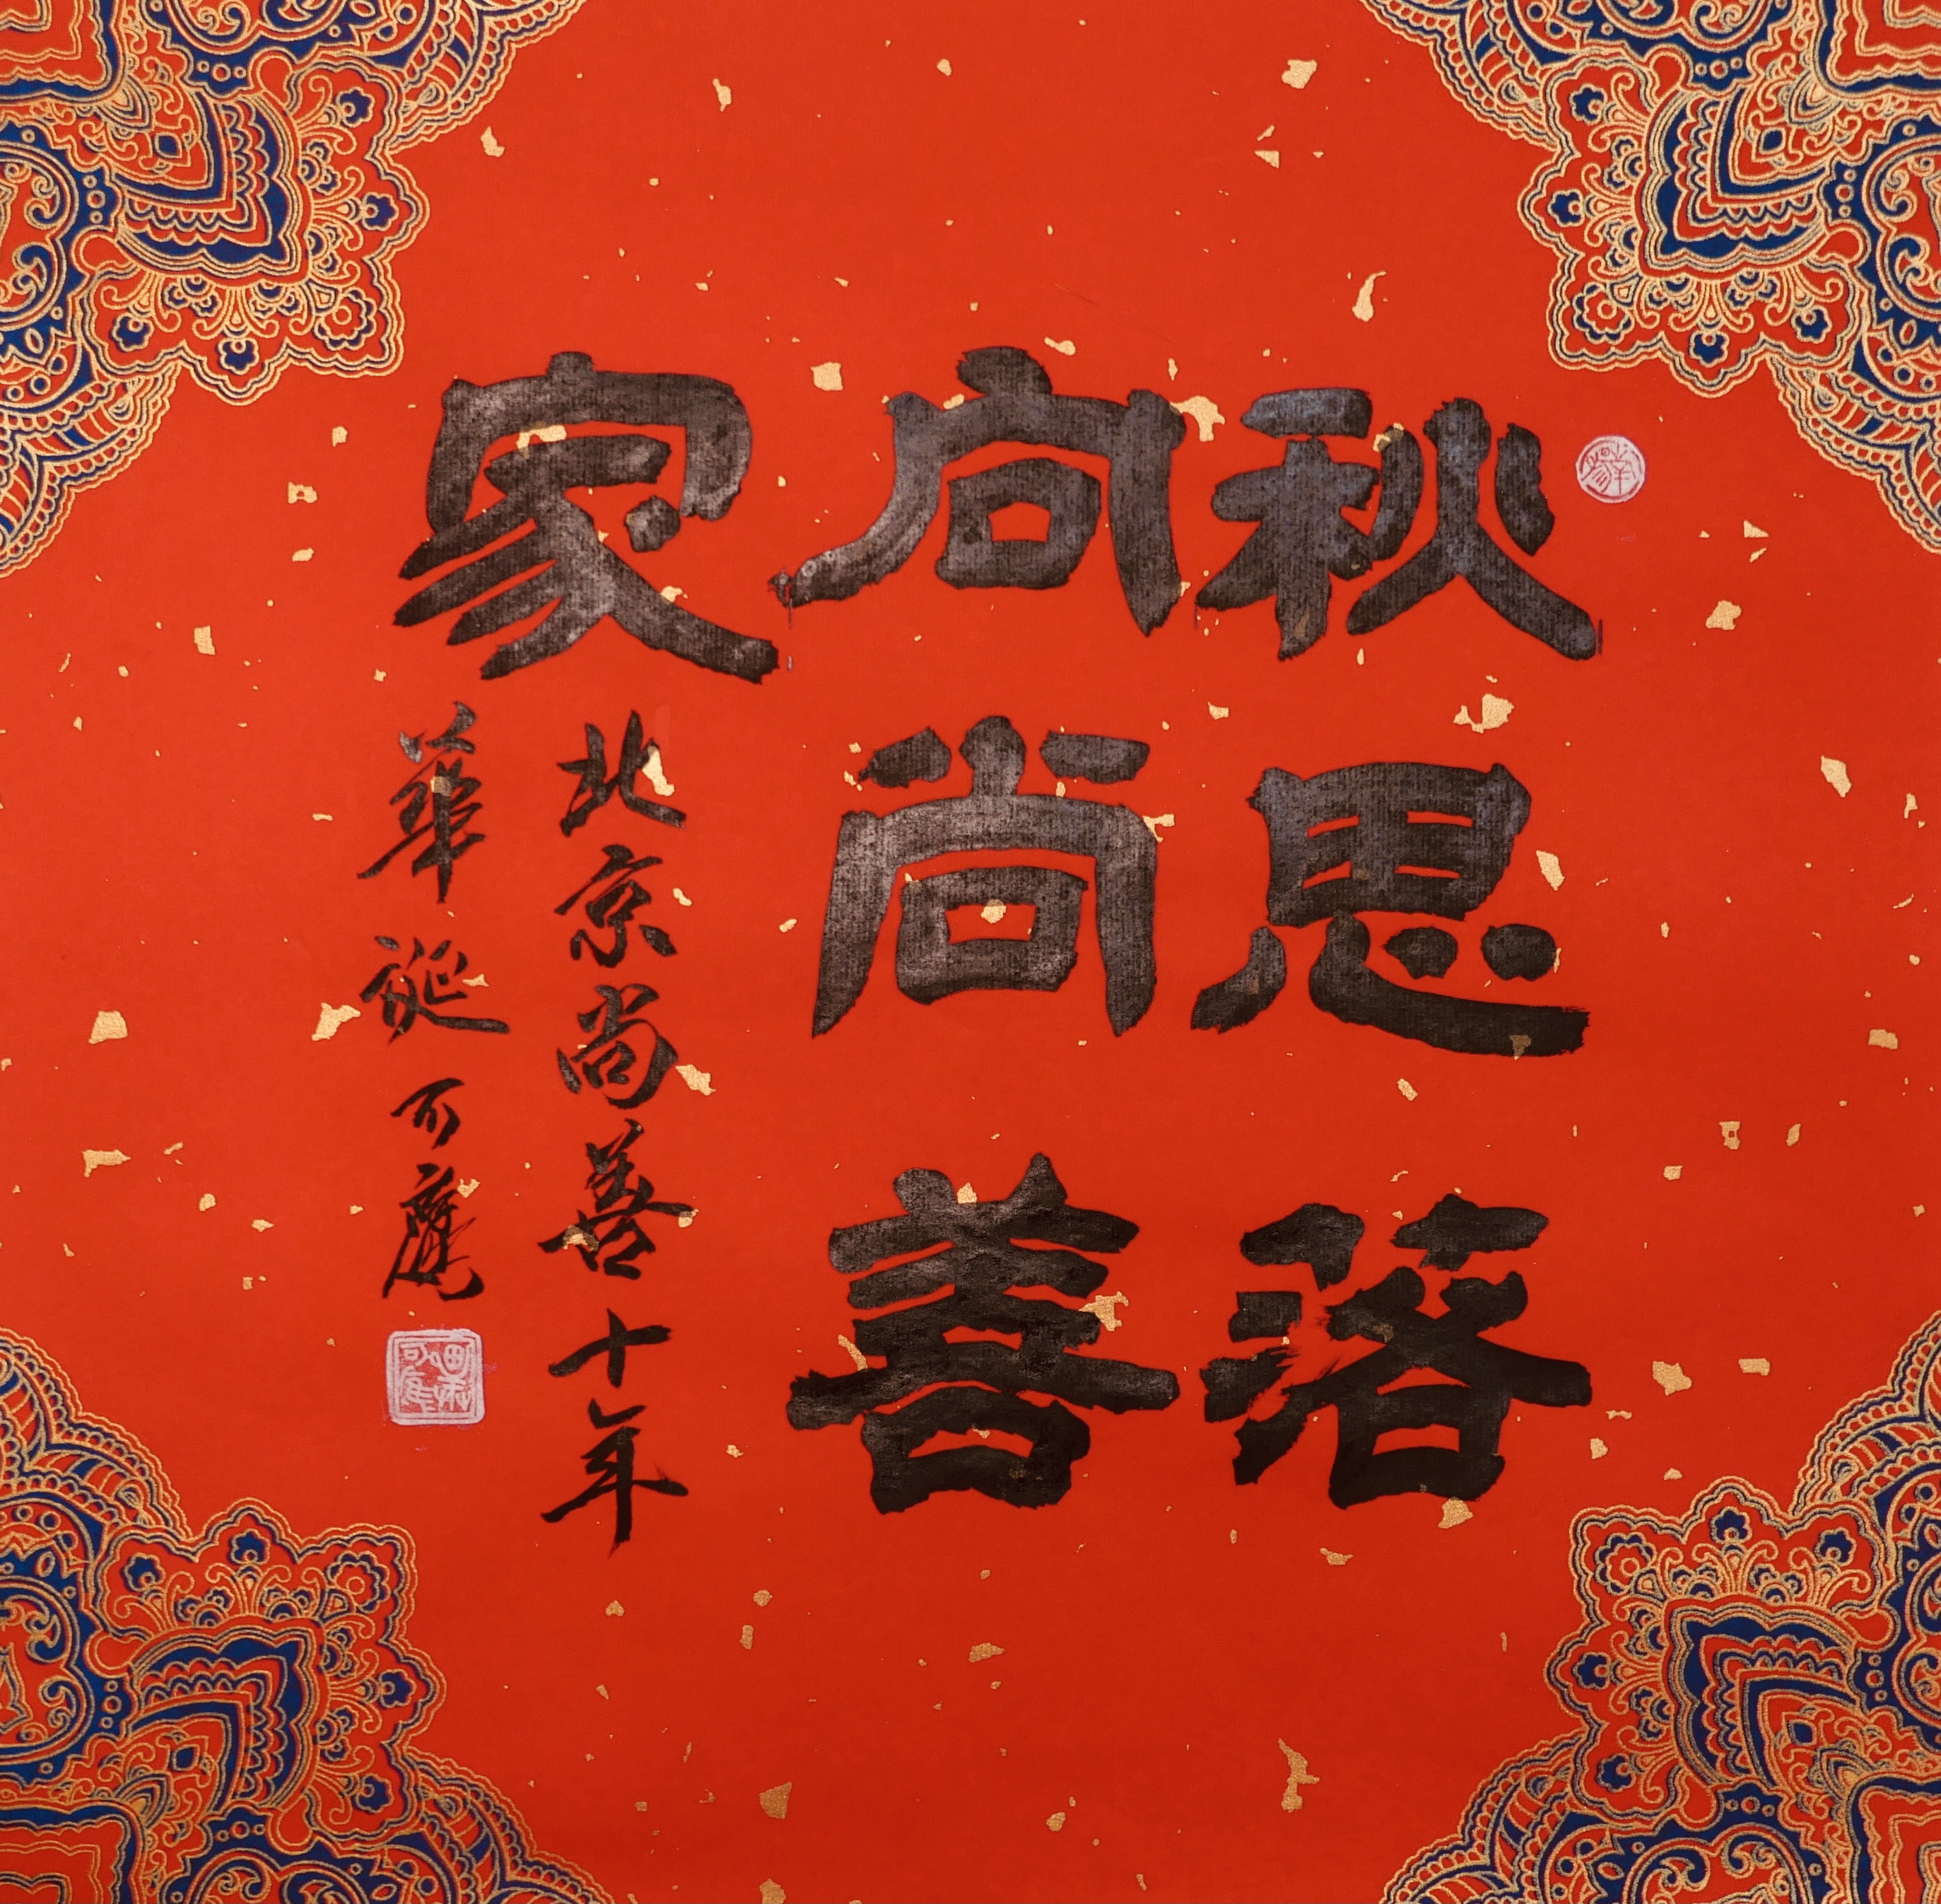 秋思落
向尚善
家
北京尚善十年
華誕 可